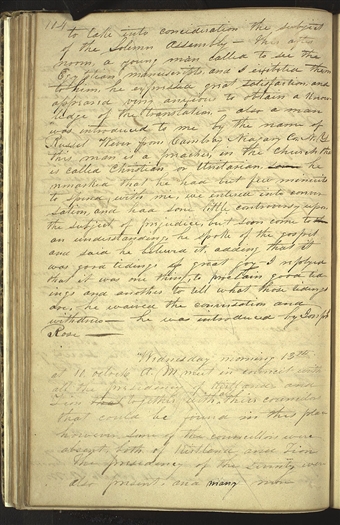 114
to take into consideration the subject
of the Solemn Assembly— this after
noon, a young man called to see the
Egyptian manuscripts, and I exibited them
to him, he expressed great satisfaction, and
appeared very anxious to obtain a know
ledge of the translation,— also a man
was introduced to me by the name of
Russel Wever from Cambria Niagary Co. N.Y.
this man is a preacher, in the Church that
is called Christian or Unitarian, he
remarked that he had but few moments
to spend with me, we entered into conver
sation, and had some little controversy upon
the subject of prejudice, but soon come to
an understanding, he spoke of the gospel
and said he believed it, adding that it
was good tidings of great joy— I replyed
that it was one thing to proclaim good tid
ings and another to tell what those tidings
are, he waived the conversation and
withdrew— he was introduced by Joseph
Rose—
Wednesday morning 13th
at 10 oclock A. M. met in council with
all the presidency of Kirtland and
Zion together with all their councilors
that could be found in this place
however some of the councillors were
absent, both of Kirtland and Zion
The presidency of the Seventy were
also present, and many more